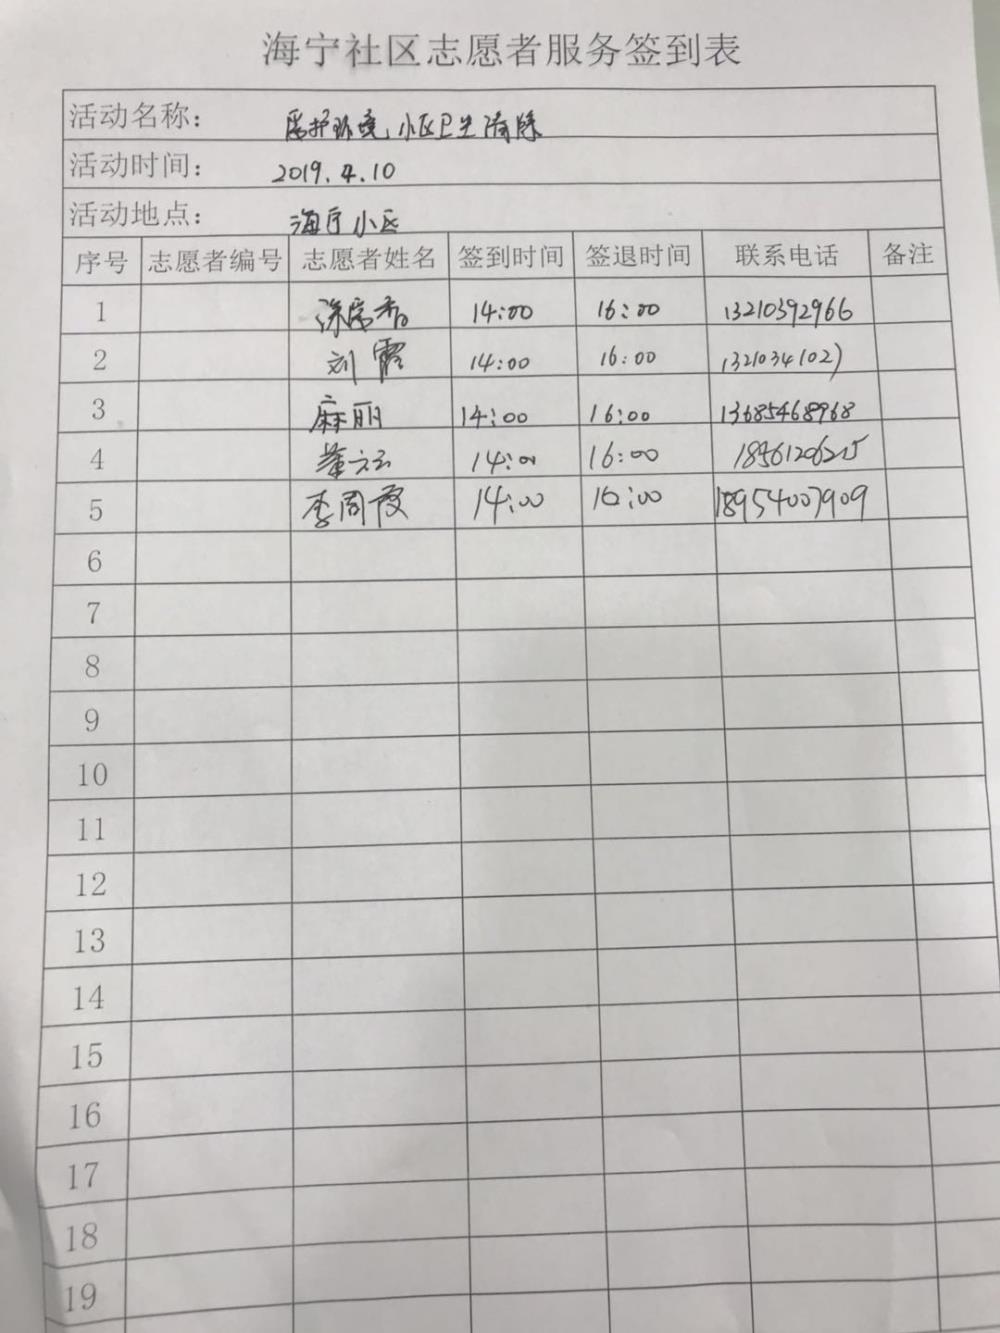 海宁社区志愿者服务签到表
活动名称： 护环境，小区卫生清除
活动时间： 2019.4.10
活动地点： 海宁小区
序号 志愿者编号 志愿者姓名 签到时间 签退时间 联系电话 备注
1 14:00 16:00 13210392966
2 刘霞 14:00 16:00 13210341027
3 麻丽 14:00 16:00 13685468968
4 14:00 16:00
5 李周霞 14:00 16:00 18954007909
6
7
8
9
10
11
12
13
14
15
16
17
18
19